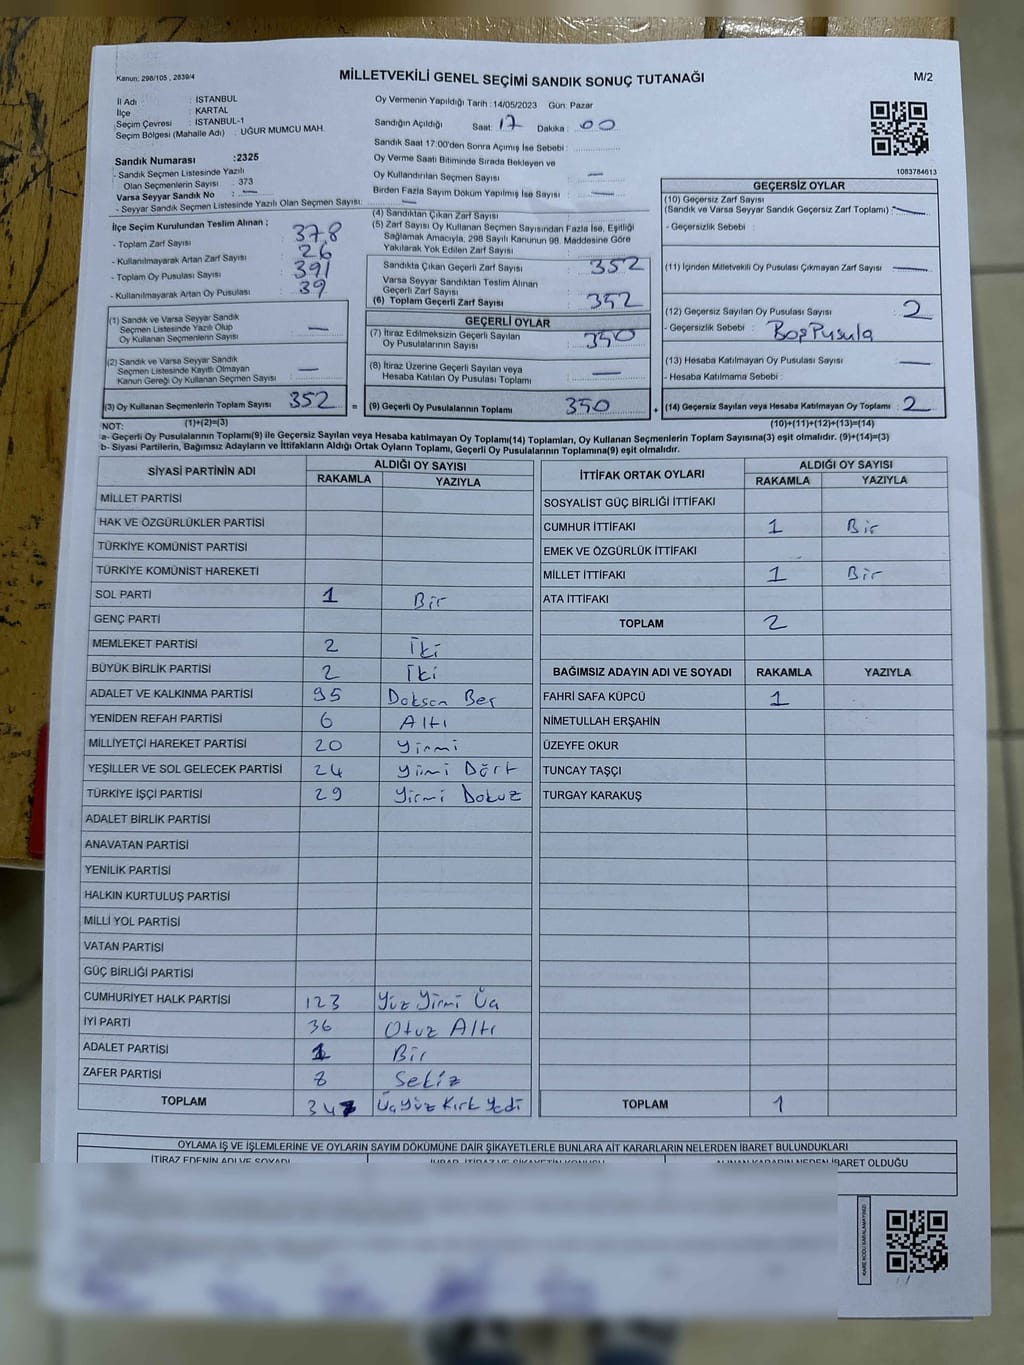 Kanun: 298/105 , 2839/4
MİLLETVEKİLİ GENEL SEÇİMİ SANDIK SONUÇ TUTANAĞI
M/2
İl Adı : İSTANBUL
İlçe : KARTAL
Seçim Çevresi : İSTANBUL-1
Seçim Bölgesi (Mahalle Adı) : UĞUR MUMCU MAH.
Sandık Numarası :2325
- Sandık Seçmen Listesinde Yazılı
Olan Seçmenlerin Sayısı : 373
Varsa Seyyar Sandık No : —
- Seyyar Sandık Seçmen Listesinde Yazılı Olan Seçmen Sayısı: —
Oy Vermenin Yapıldığı Tarih :14/05/2023 Gün: Pazar
Sandığın Açıldığı Saat: 17 Dakika : 00
Sandık Saat 17:00'den Sonra Açımış İse Sebebi :
Oy Verme Saati Bitiminde Sırada Bekleyen ve
Oy Kullandırılan Seçmen Sayısı : —
Birden Fazla Sayım Döküm Yapılmış İse Sayısı : —
1083784613
İlçe Seçim Kurulundan Teslim Alınan ;
- Toplam Zarf Sayısı : 378
- Kullanılmayarak Artan Zarf Sayısı : 26
- Toplam Oy Pusulası Sayısı : 391
- Kullanılmayarak Artan Oy Pusulası : 39
(1) Sandık ve Varsa Seyyar Sandık
Seçmen Listesinde Yazılı Olup
Oy Kullanan Seçmenlerin Sayısı : —
(2) Sandık ve Varsa Seyyar Sandık
Seçmen Listesinde Kayıtlı Olmayan
Kanun Gereği Oy Kullanan Seçmen Sayısı : —
(3) Oy Kullanan Seçmenlerin Toplam Sayısı 352 =
(1)+(2)=(3)
(4) Sandıktan Çıkan Zarf Sayısı :
(5) Zarf Sayısı Oy Kullanan Seçmen Sayısından Fazla İse, Eşitliği
Sağlamak Amacıyla, 298 Sayılı Kanunun 98. Maddesine Göre
Yakılarak Yok Edilen Zarf Sayısı :
Sandıkta Çıkan Geçerli Zarf Sayısı : 352
Varsa Seyyar Sandıktan Teslim Alınan
Geçerli Zarf Sayısı :
(6) Toplam Geçerli Zarf Sayısı : 352
GEÇERLİ OYLAR
(7) İtiraz Edilmeksizin Geçerli Sayılan
Oy Pusulalarının Sayısı : 350
(8) İtiraz Üzerine Geçerli Sayılan veya
Hesaba Katılan Oy Pusulası Toplamı : —
(9) Geçerli Oy Pusulalarının Toplamı 350 +
GEÇERSİZ OYLAR
(10) Geçersiz Zarf Sayısı
(Sandık ve Varsa Seyyar Sandık Geçersiz Zarf Toplamı) : —
- Geçersizlik Sebebi :
(11) İçinden Milletvekili Oy Pusulası Çıkmayan Zarf Sayısı : —
(12) Geçersiz Sayılan Oy Pusulası Sayısı : 2
- Geçersizlik Sebebi : Boş Pusula
(13) Hesaba Katılmayan Oy Pusulası Sayısı : —
- Hesaba Katılmama Sebebi :
(14) Geçersiz Sayılan veya Hesaba Katılmayan Oy Toplamı : 2
(10)+(11)+(12)+(13)=(14)
NOT:
a- Geçerli Oy Pusulalarının Toplamı(9) ile Geçersiz Sayılan veya Hesaba katılmayan Oy Toplamı(14) Toplamları, Oy Kullanan Seçmenlerin Toplam Sayısına(3) eşit olmalıdır. (9)+(14)=(3)
b- Siyasi Partilerin, Bağımsız Adayların ve İttifakların Aldığı Ortak Oyların Toplamı, Geçerli Oy Pusulalarının Toplamına(9) eşit olmalıdır.
SİYASİ PARTİNİN ADI ALDIĞI OY SAYISI
RAKAMLA YAZIYLA
MİLLET PARTİSİ
HAK VE ÖZGÜRLÜKLER PARTİSİ
TÜRKİYE KOMÜNİST PARTİSİ
TÜRKİYE KOMÜNİST HAREKETİ
SOL PARTİ 1 Bir
GENÇ PARTİ
MEMLEKET PARTİSİ 2 İki
BÜYÜK BİRLİK PARTİSİ 2 İki
ADALET VE KALKINMA PARTİSİ 95 Doksan Beş
YENİDEN REFAH PARTİSİ 6 Altı
MİLLİYETÇİ HAREKET PARTİSİ 20 Yirmi
YEŞİLLER VE SOL GELECEK PARTİSİ 24 Yirmi Dört
TÜRKİYE İŞÇİ PARTİSİ 29 Yirmi Dokuz
ADALET BİRLİK PARTİSİ
ANAVATAN PARTİSİ
YENİLİK PARTİSİ
HALKIN KURTULUŞ PARTİSİ
MİLLİ YOL PARTİSİ
VATAN PARTİSİ
GÜÇ BİRLİĞİ PARTİSİ
CUMHURİYET HALK PARTİSİ 123 Yüz Yirmi Üç
İYİ PARTİ 36 Otuz Altı
ADALET PARTİSİ 1 Bir
ZAFER PARTİSİ 8 Sekiz
TOPLAM 347 Üç Yüz Kırk Yedi
İTTİFAK ORTAK OYLARI ALDIĞI OY SAYISI
RAKAMLA YAZIYLA
SOSYALİST GÜÇ BİRLİĞİ İTTİFAKI
CUMHUR İTTİFAKI 1 Bir
EMEK VE ÖZGÜRLÜK İTTİFAKI
MİLLET İTTİFAKI 1 Bir
ATA İTTİFAKI
TOPLAM 2
BAĞIMSIZ ADAYIN ADI VE SOYADI RAKAMLA YAZIYLA
FAHRİ SAFA KÜPCÜ 1
NİMETULLAH ERŞAHİN
ÜZEYFE OKUR
TUNCAY TAŞÇI
TURGAY KARAKUŞ
TOPLAM 1
OYLAMA İŞ VE İŞLEMLERİNE VE OYLARIN SAYIM DÖKÜMÜNE DAİR ŞİKAYETLERLE BUNLARA AİT KARARLARIN NELERDEN İBARET BULUNDUKLARI
İTİRAZ EDENİN ADI VE SOYADI
ALINAN KARARIN NEDEN İBARET OLDUĞU
KARE KODU KARALAMAYINIZ!